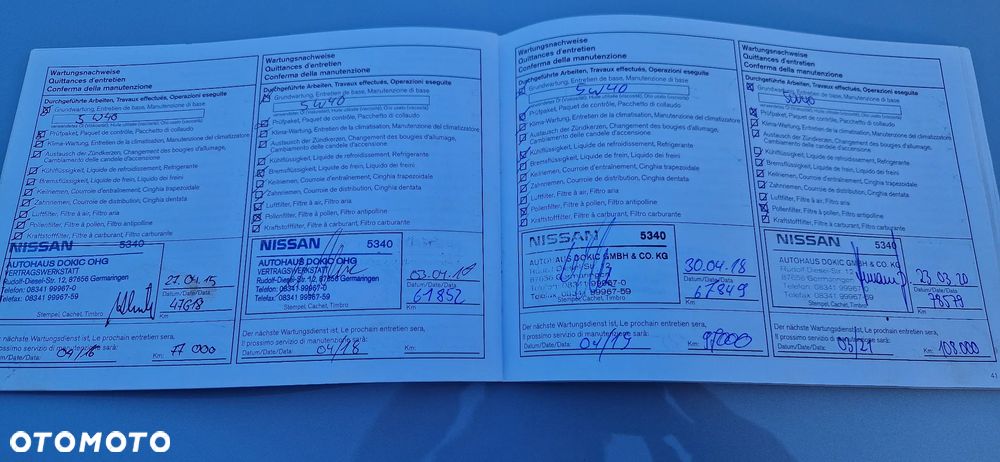 Wartungsnachweise
Quittances d'entretien
Conferma della manutenzione
Durchgeführte Arbeiten, Travaux effectués, Operazioni eseguite
Grundwartung, Entretien de base, Manutenzione di base
5W40
Prüfpaket, Paquet de contrôle, Pacchetto di collaudo
Klima-Wartung, Entretien de la climatisation, Manutenzione del climatizzatore
Austausch der Zündkerzen, Changement des bougies d'allumage,
Cambiamento delle candele d'accensione
Kühlflüssigkeit, Liquide de refroidissement, Refrigerante
Bremsflüssigkeit, Liquide de frein, Liquido dei freni
Keilriemen, Courroie d'entraînement, Cinghia trapezoidale
Zahnriemen, Courroie de distribution, Cinghia dentata
Luftfilter, Filtre à air, Filtro aria
Pollenfilter, Filtre à pollen, Filtro antipolline
Kraftstofffilter, Filtre à carburant, Filtro carburante
NISSAN 5340
AUTOHAUS DOKIC OHG
VERTRAGSWERKSTATT
Rudolf-Diesel-Str. 12, 87656 Germaringen
Telefon: 08341 99967-0
Telefax: 08341 99967-59
Stempel, Cachet, Timbro
Datum/Date/Data
Km:
Der nächste Wartungsdienst ist, Le prochain entretien sera,
Il prossimo servizio di manutenzione sarà:
Datum/Date/Data: 04/16 Km:
Wartungsnachweise
Quittances d'entretien
Conferma della manutenzione
Durchgeführte Arbeiten, Travaux effectués, Operazioni eseguite
Grundwartung, Entretien de base, Manutenzione di base
5W40
Prüfpaket, Paquet de contrôle, Pacchetto di collaudo
Klima-Wartung, Entretien de la climatisation, Manutenzione del climatizzatore
Austausch der Zündkerzen, Changement des bougies d'allumage,
Cambiamento delle candele d'accensione
Kühlflüssigkeit, Liquide de refroidissement, Refrigerante
Bremsflüssigkeit, Liquide de frein, Liquido dei freni
Keilriemen, Courroie d'entraînement, Cinghia trapezoidale
Zahnriemen, Courroie de distribution, Cinghia dentata
Luftfilter, Filtre à air, Filtro aria
Pollenfilter, Filtre à pollen, Filtro antipolline
Kraftstofffilter, Filtre à carburant, Filtro carburante
NISSAN 5340
AUTOHAUS DOKIC OHG
VERTRAGSWERKSTATT
Rudolf-Diesel-Str. 12, 87656 Germaringen
Telefon: 08341 99967-0
Telefax: 08341 99967-59
Stempel, Cachet, Timbro
Datum/Date/Data
61852
Km:
Der nächste Wartungsdienst ist, Le prochain entretien sera,
Il prossimo servizio di manutenzione sarà:
Datum/Date/Data: 04/18 Km:
Wartungsnachweise
Quittances d'entretien
Conferma della manutenzione
Durchgeführte Arbeiten, Travaux effectués, Operazioni eseguite
Grundwartung, Entretien de base, Manutenzione di base
5W40
Prüfpaket, Paquet de contrôle, Pacchetto di collaudo
Klima-Wartung, Entretien de la climatisation, Manutenzione del climatizzatore
Austausch der Zündkerzen, Changement des bougies d'allumage,
Cambiamento delle candele d'accensione
Kühlflüssigkeit, Liquide de refroidissement, Refrigerante
Bremsflüssigkeit, Liquide de frein, Liquido dei freni
Keilriemen, Courroie d'entraînement, Cinghia trapezoidale
Zahnriemen, Courroie de distribution, Cinghia dentata
Luftfilter, Filtre à air, Filtro aria
Pollenfilter, Filtre à pollen, Filtro antipolline
Kraftstofffilter, Filtre à carburant, Filtro carburante
NISSAN 5340
AUTOHAUS DOKIC GMBH & CO. KG
99967-0
99967-59
Stempel, Cachet, Timbro
30.04.18
Datum/Date/Data
67849
Km:
Der nächste Wartungsdienst ist, Le prochain entretien sera,
Il prossimo servizio di manutenzione sarà:
Datum/Date/Data: 04/19 Km: 97000
Wartungsnachweise
Quittances d'entretien
Conferma della manutenzione
Durchgeführte Arbeiten, Travaux effectués, Operazioni eseguite
Grundwartung, Entretien de base, Manutenzione di base
5W40
Prüfpaket, Paquet de contrôle, Pacchetto di collaudo
Klima-Wartung, Entretien de la climatisation, Manutenzione del climatizzatore
Austausch der Zündkerzen, Changement des bougies d'allumage,
Cambiamento delle candele d'accensione
Kühlflüssigkeit, Liquide de refroidissement, Refrigerante
Bremsflüssigkeit, Liquide de frein, Liquido dei freni
Keilriemen, Courroie d'entraînement, Cinghia trapezoidale
Zahnriemen, Courroie de distribution, Cinghia dentata
Luftfilter, Filtre à air, Filtro aria
Pollenfilter, Filtre à pollen, Filtro antipolline
Kraftstofffilter, Filtre à carburant, Filtro carburante
NISSAN 5340
AUTOHAUS DOKIC GMBH & CO. KG
Rudolf-Diesel-Str. 12
Telefon: 08341 99967-0
Telefax: 08341 99967-59
Stempel, Cachet, Timbro
23.03.20
Datum/Date/Data
78579
Km:
Der nächste Wartungsdienst ist, Le prochain entretien sera,
Il prossimo servizio di manutenzione sarà:
Datum/Date/Data: 03/21 Km: 108.000
41
OTOMOTO